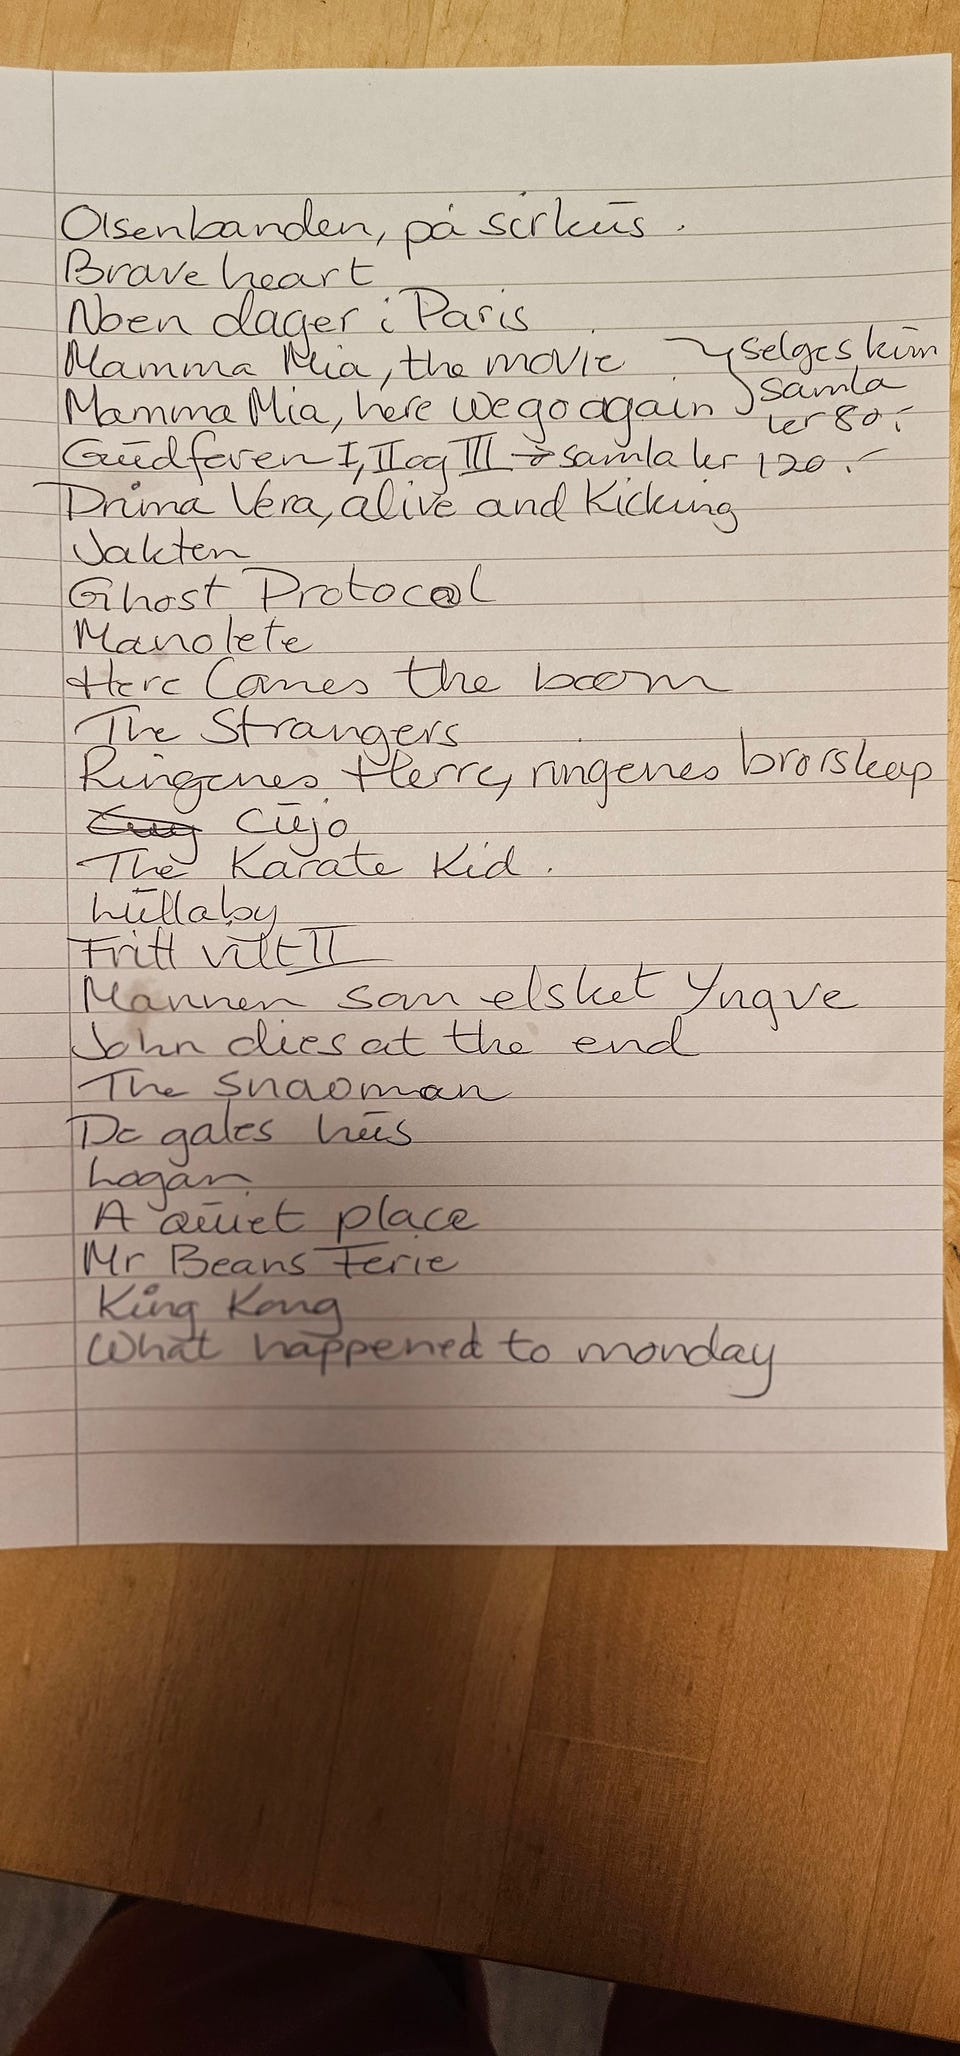 Olsenbanden, på sirkus.
Braveheart
Noen dager i Paris
Mamma Mia, the movie selges kun
Mamma Mia, here we go again samla
kr 80,-
Gudfaren I, II og III → samla kr 120.-
Prima Vera, alive and Kicking
Jakten
Ghost Protocol
Manolete
Here Comes the boom
The Strangers
Ringenes Herre, ringenes brorskap
Cujo
The Karate Kid.
Lullaby
Fritt vilt II
Mannen som elsket Yngve
John dies at the end
The Snaoman
De gales hus
Logan
A quiet place
Mr Beans Ferie
King Kong
What happened to monday